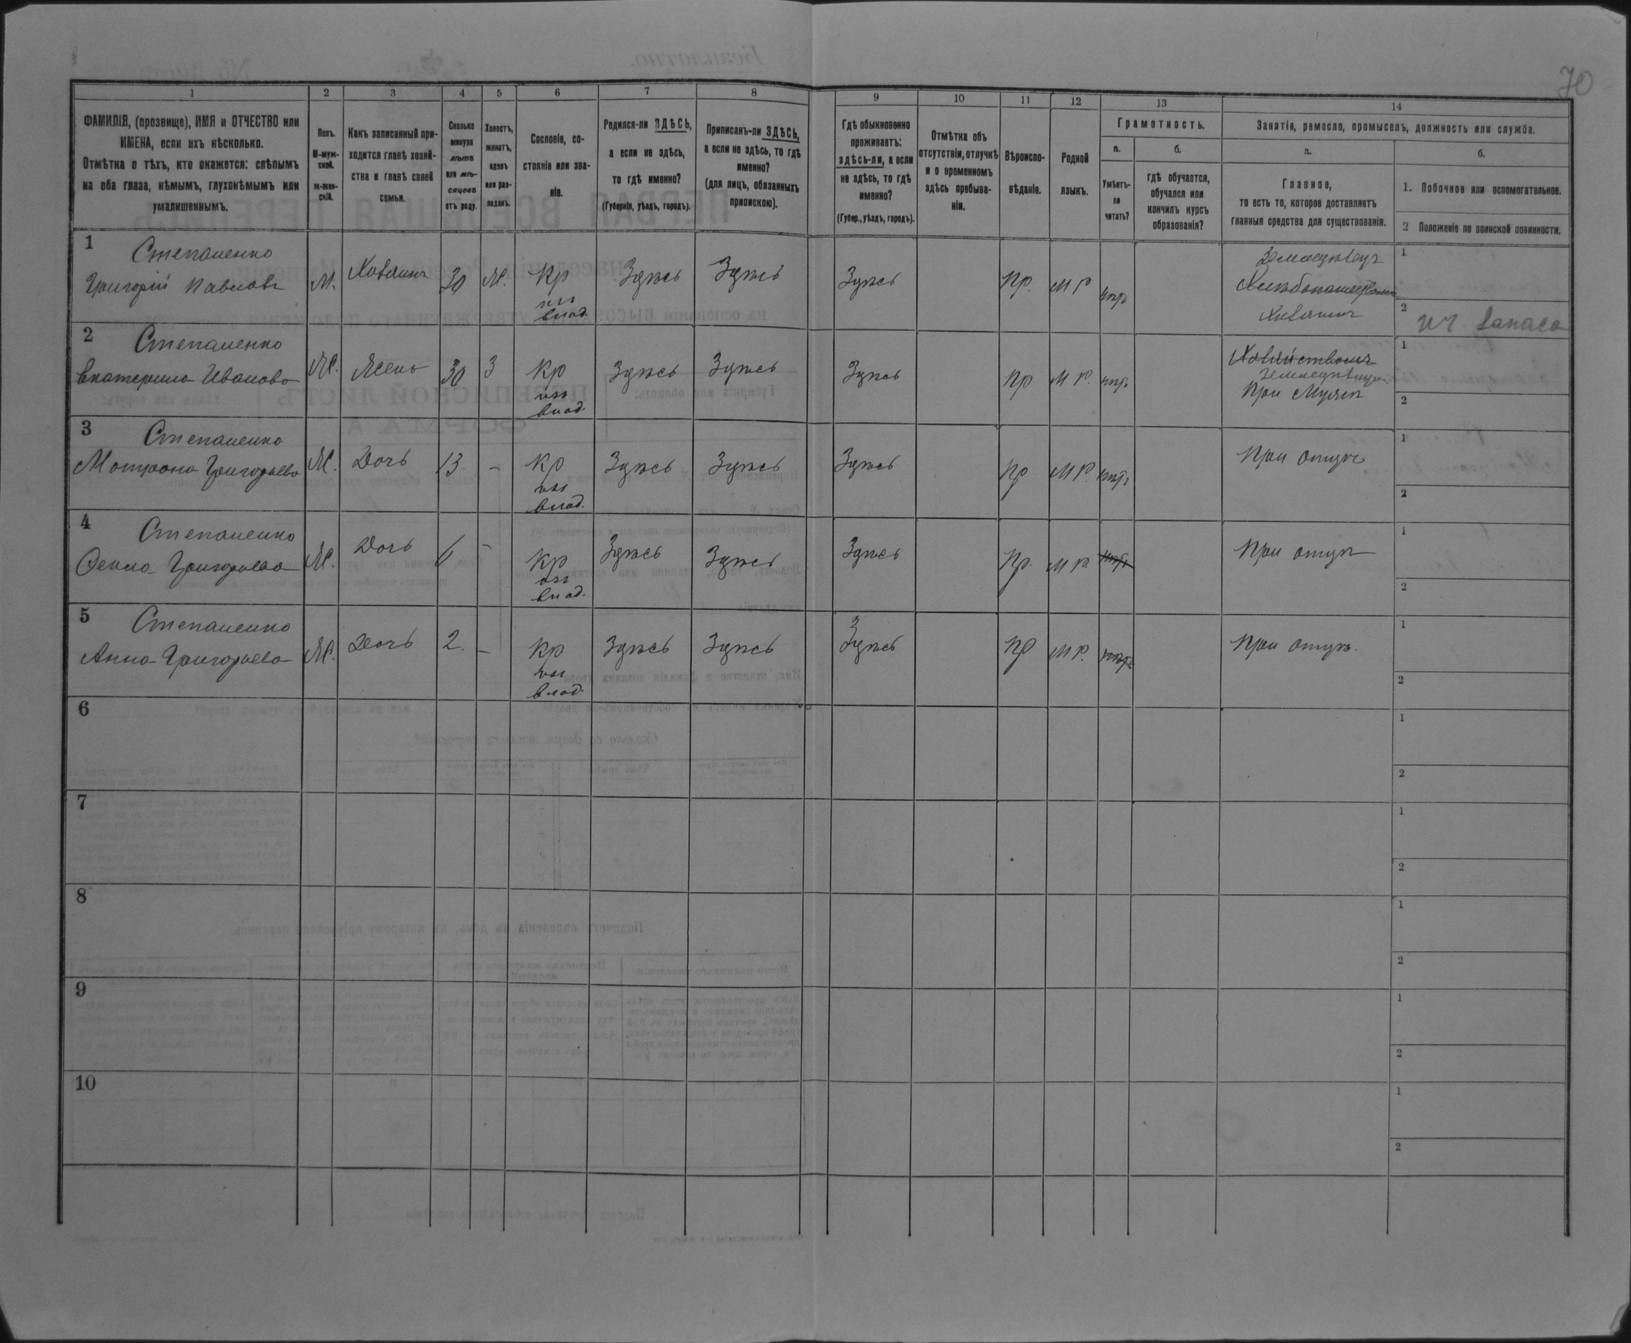 70
1 2 3 4 5 6 7 8 9 10 11 12 13 14
ФАМИЛІЯ, (прозвище), ИМЯ и ОТЧЕСТВО или
ИМЕНА, если ихъ нѣсколько.
Отмѣтка о тѣхъ, кто окажется: слѣпымъ
на оба глаза, нѣмымъ, глухонѣмымъ или
умалишеннымъ.
Полъ.
М-муж-
ской.
ж-жен-
скій.
Какъ записанный при-
ходится главѣ хозяй-
ства и главѣ своей
семьи.
Сколько
минуло
лѣтъ
или мѣ-
сяцевъ
отъ роду.
Холостъ,
женатъ,
вдовъ
или раз-
веденъ.
Сословіе, со-
стояніе или зва-
ніе.
Родился-ли ЗДѢСЬ,
а если не здѣсь,
то гдѣ именно?
(Губернія, уѣздъ, городъ).
Приписанъ-ли ЗДѢСЬ,
а если не здѣсь, то гдѣ
именно?
(для лицъ, обязанныхъ
припискою).
Гдѣ обыкновенно
проживаетъ:
здѣсь-ли, а если
не здѣсь, то гдѣ
именно?
(Губер., уѣздъ, городъ).
Отмѣтка объ
отсутствіи, отлучкѣ
и о временномъ
здѣсь пребыва-
ніи.
Вѣроиспо-
вѣданіе.
Родной
языкъ.
Грамотность.
а.
Умѣетъ-
ли
читать?
б.
гдѣ обучается,
обучался или
кончилъ курсъ
образованія?
Занятія, ремесло, промыселъ, должность или служба.
а.
Главное,
то есть то, которое доставляетъ
главныя средства для существованія.
б.
1. Побочное или вспомогательное.
2 Положеніе по воинской повинности.
1 Степаненко
Григорій Павловъ М. Хозяинъ 30 Ж. Кр Здѣсь Здѣсь Здѣсь Пр. МР
влад.
Земледѣлецъ
Хозяинъ
1
2
2 Степаненко
Екатерина Иванова Ж. Жена 30 З Кр Здѣсь Здѣсь Здѣсь Пр МР.
влад.
При Мужѣ
1
2
3 Степаненко
Мотрона Григорьева Ж. Дочь 13 – Кр Здѣсь Здѣсь Здѣсь Пр МР При отцѣ
влад.
1
2
4 Степаненко
Григорьева Ж. Дочь 6 – Кр Здѣсь Здѣсь Здѣсь Пр. МР При отцѣ
влад.
1
2
5 Степаненко
Анна Григорьева Ж. Дочь 2. – Кр Здѣсь Здѣсь Здѣсь Пр МР. При отцѣ.
влад.
1
2
6
1
2
7
1
2
8
1
2
9
1
2
10
1
2